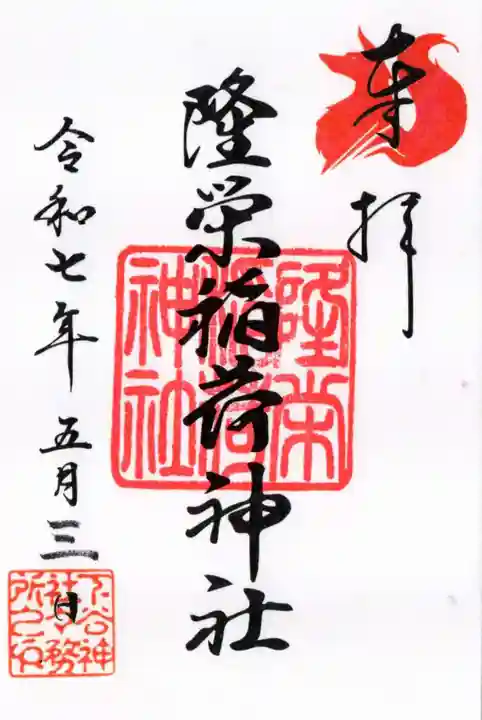 奉拝
隆栄稲荷神社
隆栄
稲荷
神社
令和七年五月三日
下谷神
社社務
所之印